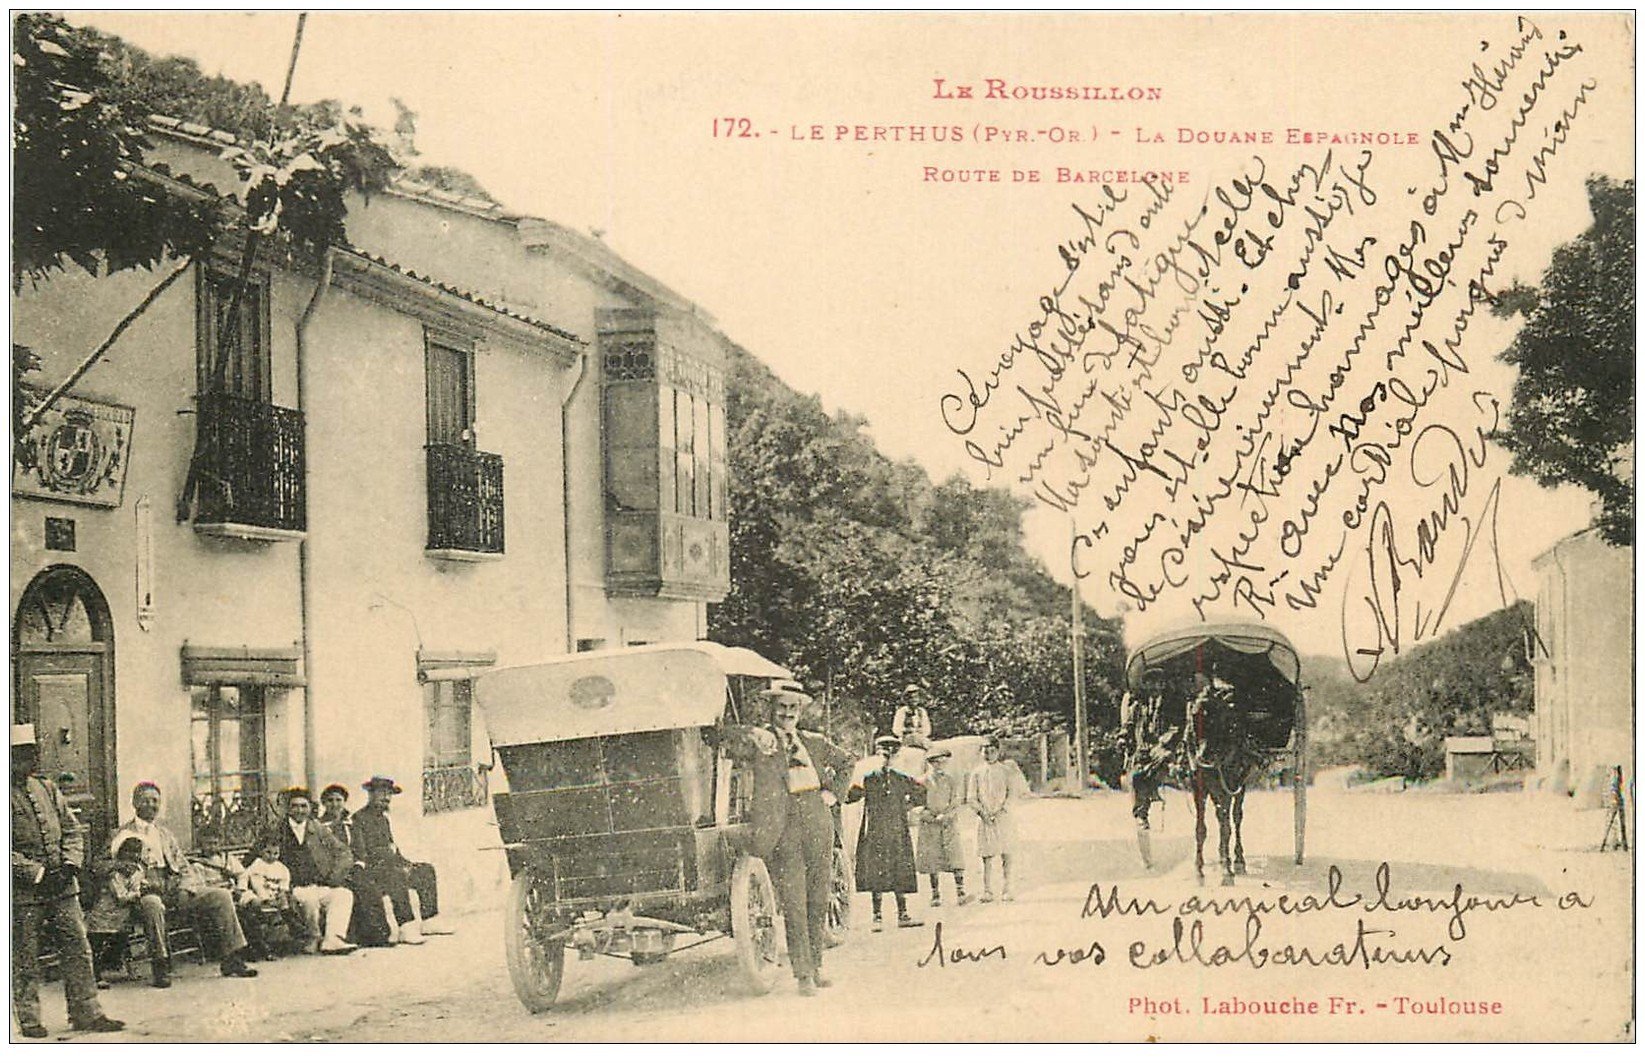 LE ROUSSILLON
172. - LE PERTHUS (PYR.-OR.) - LA DOUANE ESPAGNOLE
ROUTE DE BARCELONE
Ce voyage s'est-il
bien passé sans
un peu de fatigue.
Ma santé est bonne et celle
des enfants aussi. Et chez
vous est-elle bonne aussi, je
le désire vivement. Mes
respectueux hommages à Mme
avec nos meilleurs souvenirs
Une cordiale poignée de main
Un amical bonjour à
tous vos collaborateurs
Phot. Labouche Fr. - Toulouse